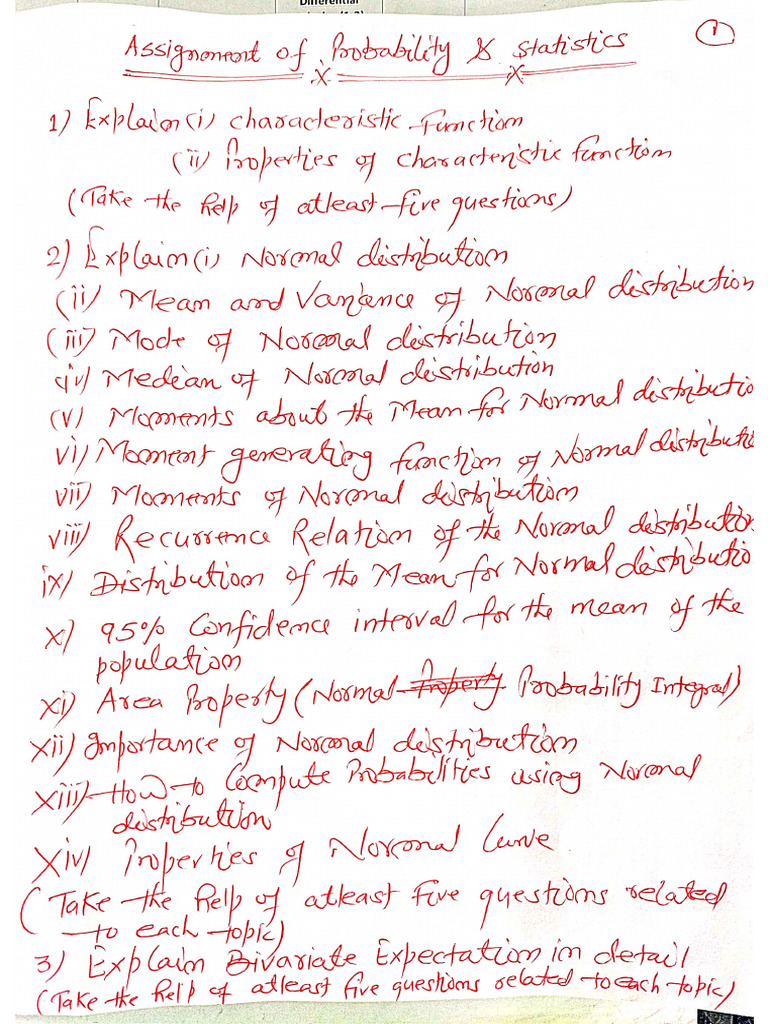 Differential
1
Assignment of Probability & Statistics
x x
1) Explain (i) characteristic function
(ii) Properties of characteristic function
(Take the help of atleast five questions)
2) Explain (i) Normal distribution
(ii) Mean and Variance of Normal distribution
(iii) Mode of Normal distribution
(iv) Median of Normal distribution
(v) Moments about the Mean for Normal distributio
vi) Moment generating function of Normal distributi
vii) Moments of Normal distribution
viii) Recurrence Relation of the Normal distribution
ix) Distribution of the Mean for Normal distributio
x) 95% Confidence interval for the mean of the
population
xi) Area Property (Normal Property Probability Integral)
xii) Importance of Normal distribution
xiii) How to Compute Probabilities using Normal
distribution
xiv) Properties of Normal Curve
(Take the help of atleast five questions related
to each topic)
3) Explain Bivariate Expectation in detail
(Take the help of atleast five questions related to each topic)